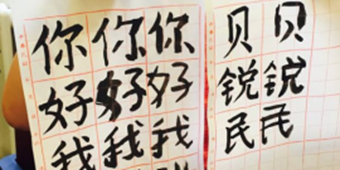 你你你
好好好
我我我
贝贝
锐锐
民民